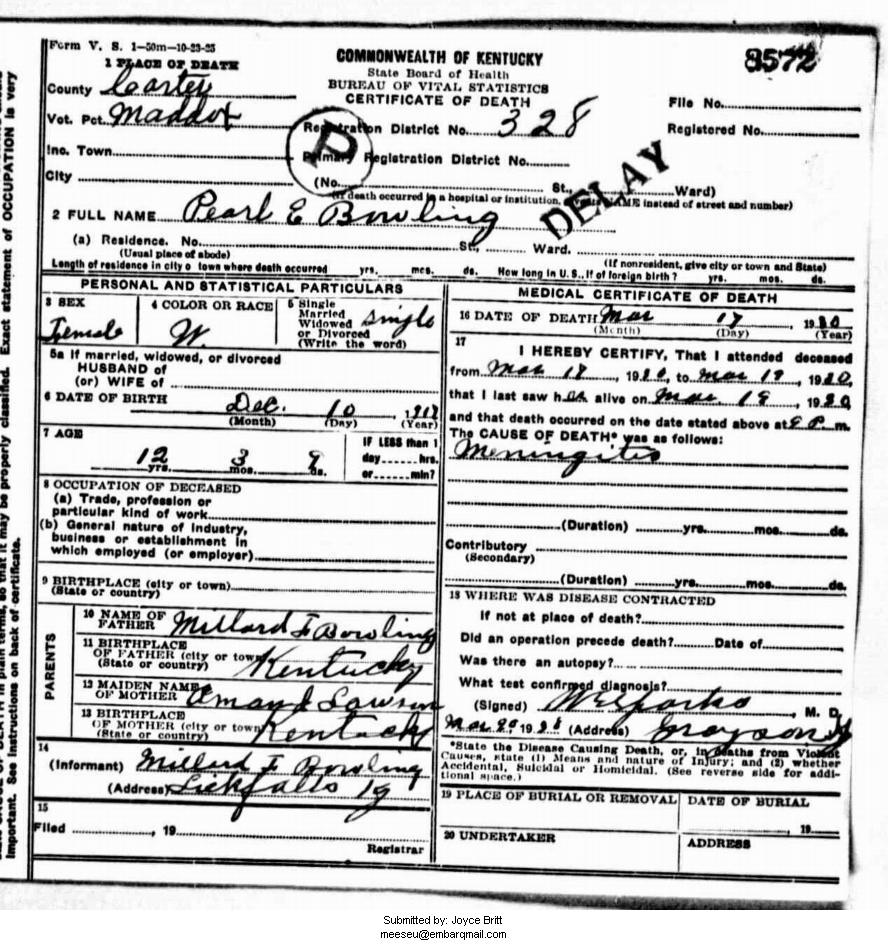 Form V. S. 1—50m—10-23-25
1 PLACE OF DEATH
COMMONWEALTH OF KENTUCKY
State Board of Health
BUREAU OF VITAL STATISTICS
CERTIFICATE OF DEATH
8572
County Carter
Vot. Pct. Maddox
Registration District No. 328
File No.
Registered No.
Inc. Town
Primary Registration District No.
D
DELAY
City (No. St., Ward)
(If death occurred in a hospital or institution, NAME instead of street and number)
2 FULL NAME Pearl E Bowling
(a) Residence. No. St., Ward.
(Usual place of abode) (If nonresident, give city or town and State)
Length of residence in city o town where death occurred yrs. mos. ds. How long in U. S., if of foreign birth? yrs. mos. ds.
PERSONAL AND STATISTICAL PARTICULARS
3 SEX
Female
4 COLOR OR RACE
W.
5 Single
Married
Widowed
or Divorced
(Write the word)
Single
5a If married, widowed, or divorced
HUSBAND of
(or) WIFE of
6 DATE OF BIRTH
Dec. 10
(Month) (Day) (Year)
7 AGE
12 yrs. 3 mos. ds.
IF LESS than 1
day hrs.
or min?
8 OCCUPATION OF DECEASED
(a) Trade, profession or
particular kind of work
(b) General nature of industry,
business or establishment in
which employed (or employer)
9 BIRTHPLACE (city or town)
(State or country)
PARENTS
10 NAME OF
FATHER Millard F Bowling
11 BIRTHPLACE
OF FATHER (city or town)
(State or country) Kentucky
12 MAIDEN NAME
OF MOTHER Lawson
13 BIRTHPLACE
OF MOTHER (city or town)
(State or country) Kentucky
14
(Informant) Millard F Bowling
(Address) Lickfalls Ky
15
Filed , 19
Registrar
MEDICAL CERTIFICATE OF DEATH
16 DATE OF DEATH Mar 19
(Month) (Day) (Year)
17
I HEREBY CERTIFY, That I attended deceased
from Mar 18, 19 , to Mar 19, 19 ,
that I last saw her alive on Mar 19, 19
and that death occurred on the date stated above at P. m.
The CAUSE OF DEATH* was as follows:
Meningitis
(Duration) yrs. mos. ds.
Contributory
(Secondary)
(Duration) yrs. mos. ds.
18 WHERE WAS DISEASE CONTRACTED
If not at place of death?
Did an operation precede death? Date of
Was there an autopsy?
What test confirmed diagnosis?
(Signed) W E Sparks, M. D.
Mar 20, 19 (Address) Grayson Ky
*State the Disease Causing Death, or, in deaths from Violent
Causes, state (1) Means and nature of Injury; and (2) whether
Accidental, Suicidal or Homicidal. (See reverse side for addi-
tional space.)
19 PLACE OF BURIAL OR REMOVAL
DATE OF BURIAL
19
20 UNDERTAKER
ADDRESS
OF DEATH in plain terms, so that it may be properly classified. Exact statement of OCCUPATION is very
important. See instructions on back of certificate.
Submitted by: Joyce Britt
meeseu@embarqmail.com